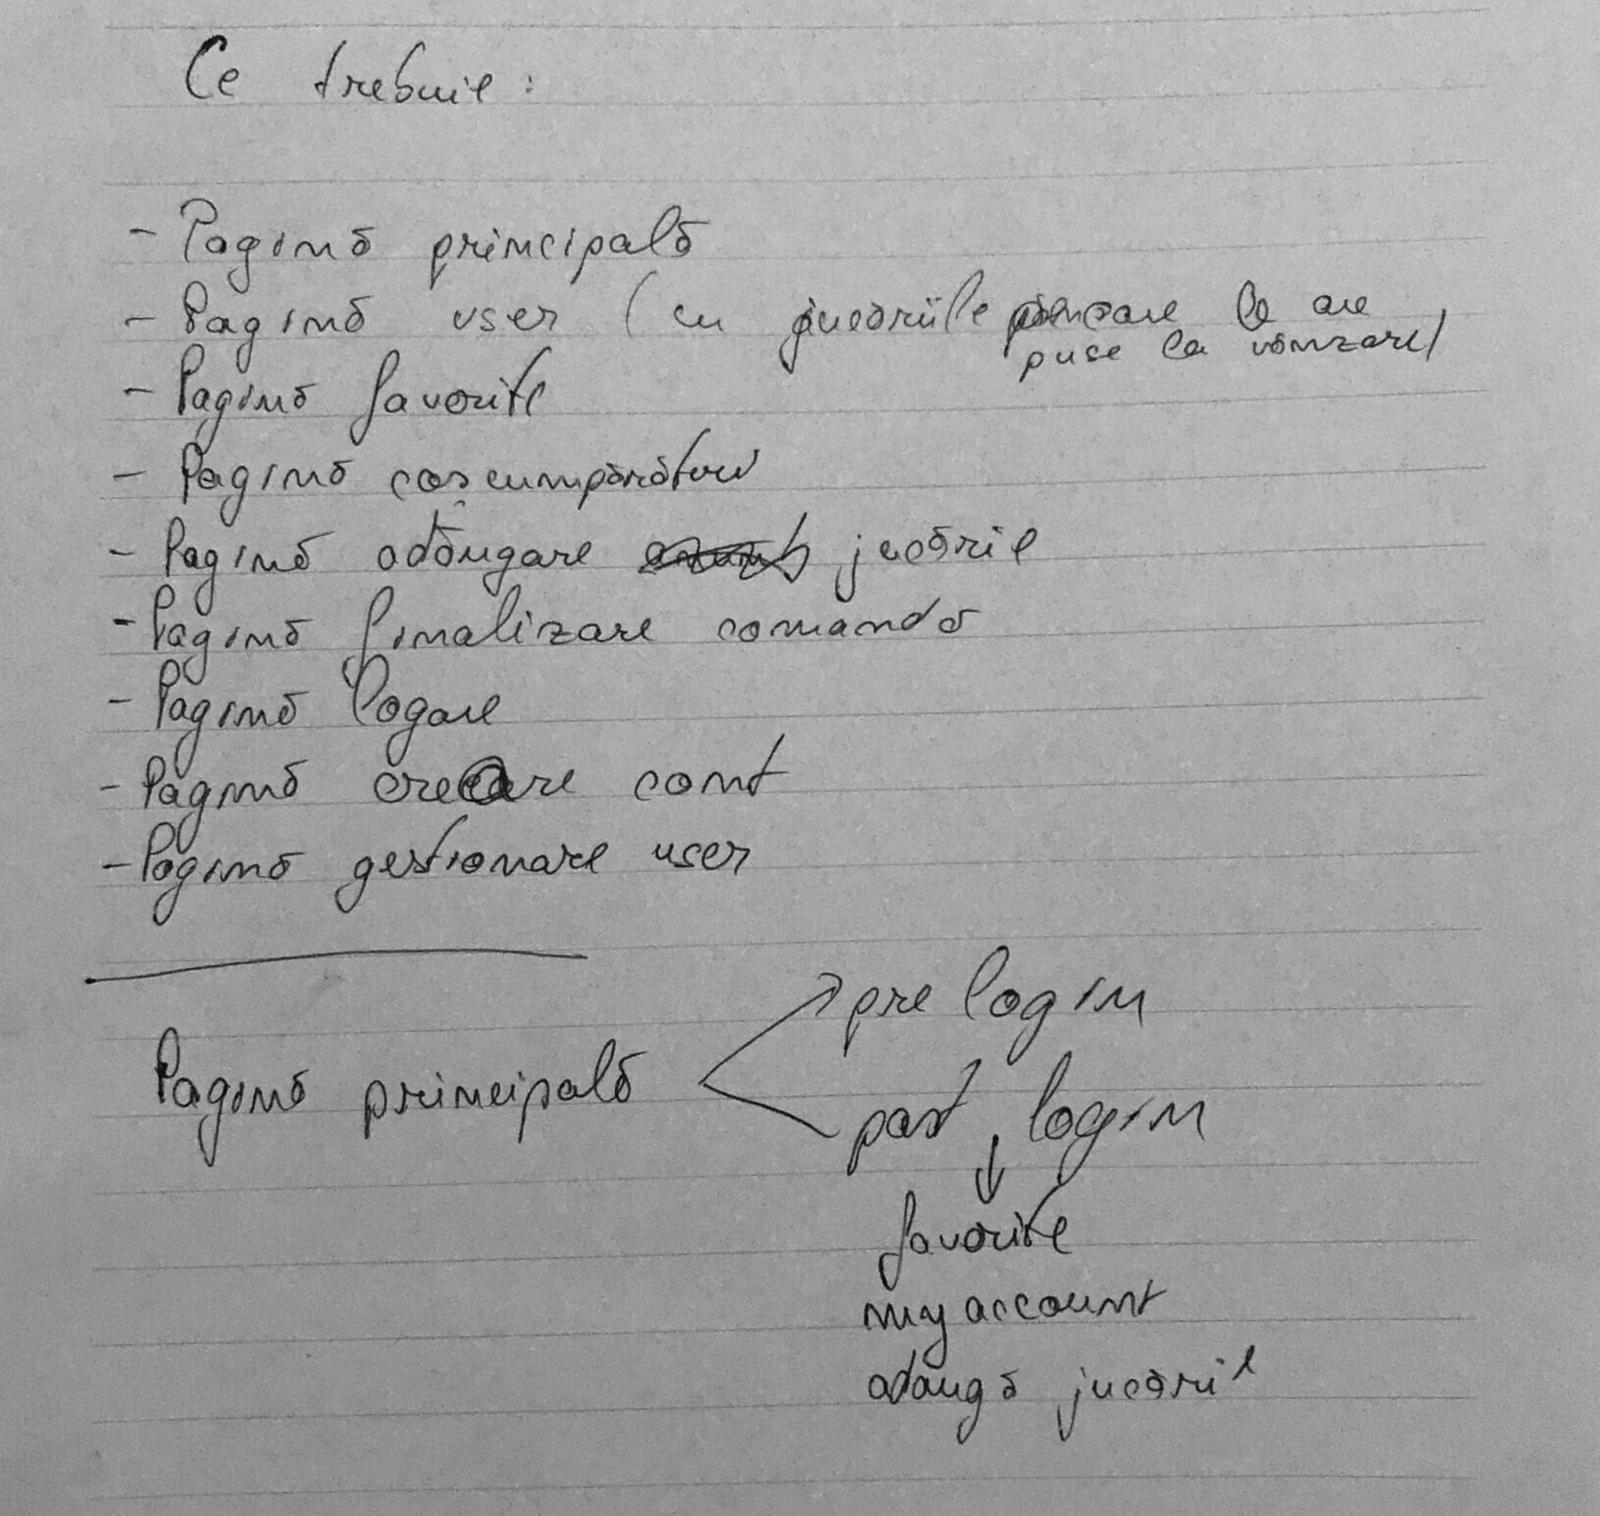 Ce trebuie:
- Pagină principală
- Pagină user (cu jucăriile pe care le are
puse la vânzare)
- Pagină favorite
- Pagină coș cumpărături
- Pagină adăugare jucărie
- Pagină finalizare comandă
- Pagină logare
- Pagină creare cont
- Pagină gestionare user
pre login
Pagină principală
post login
favorite
my account
adaugă jucărie